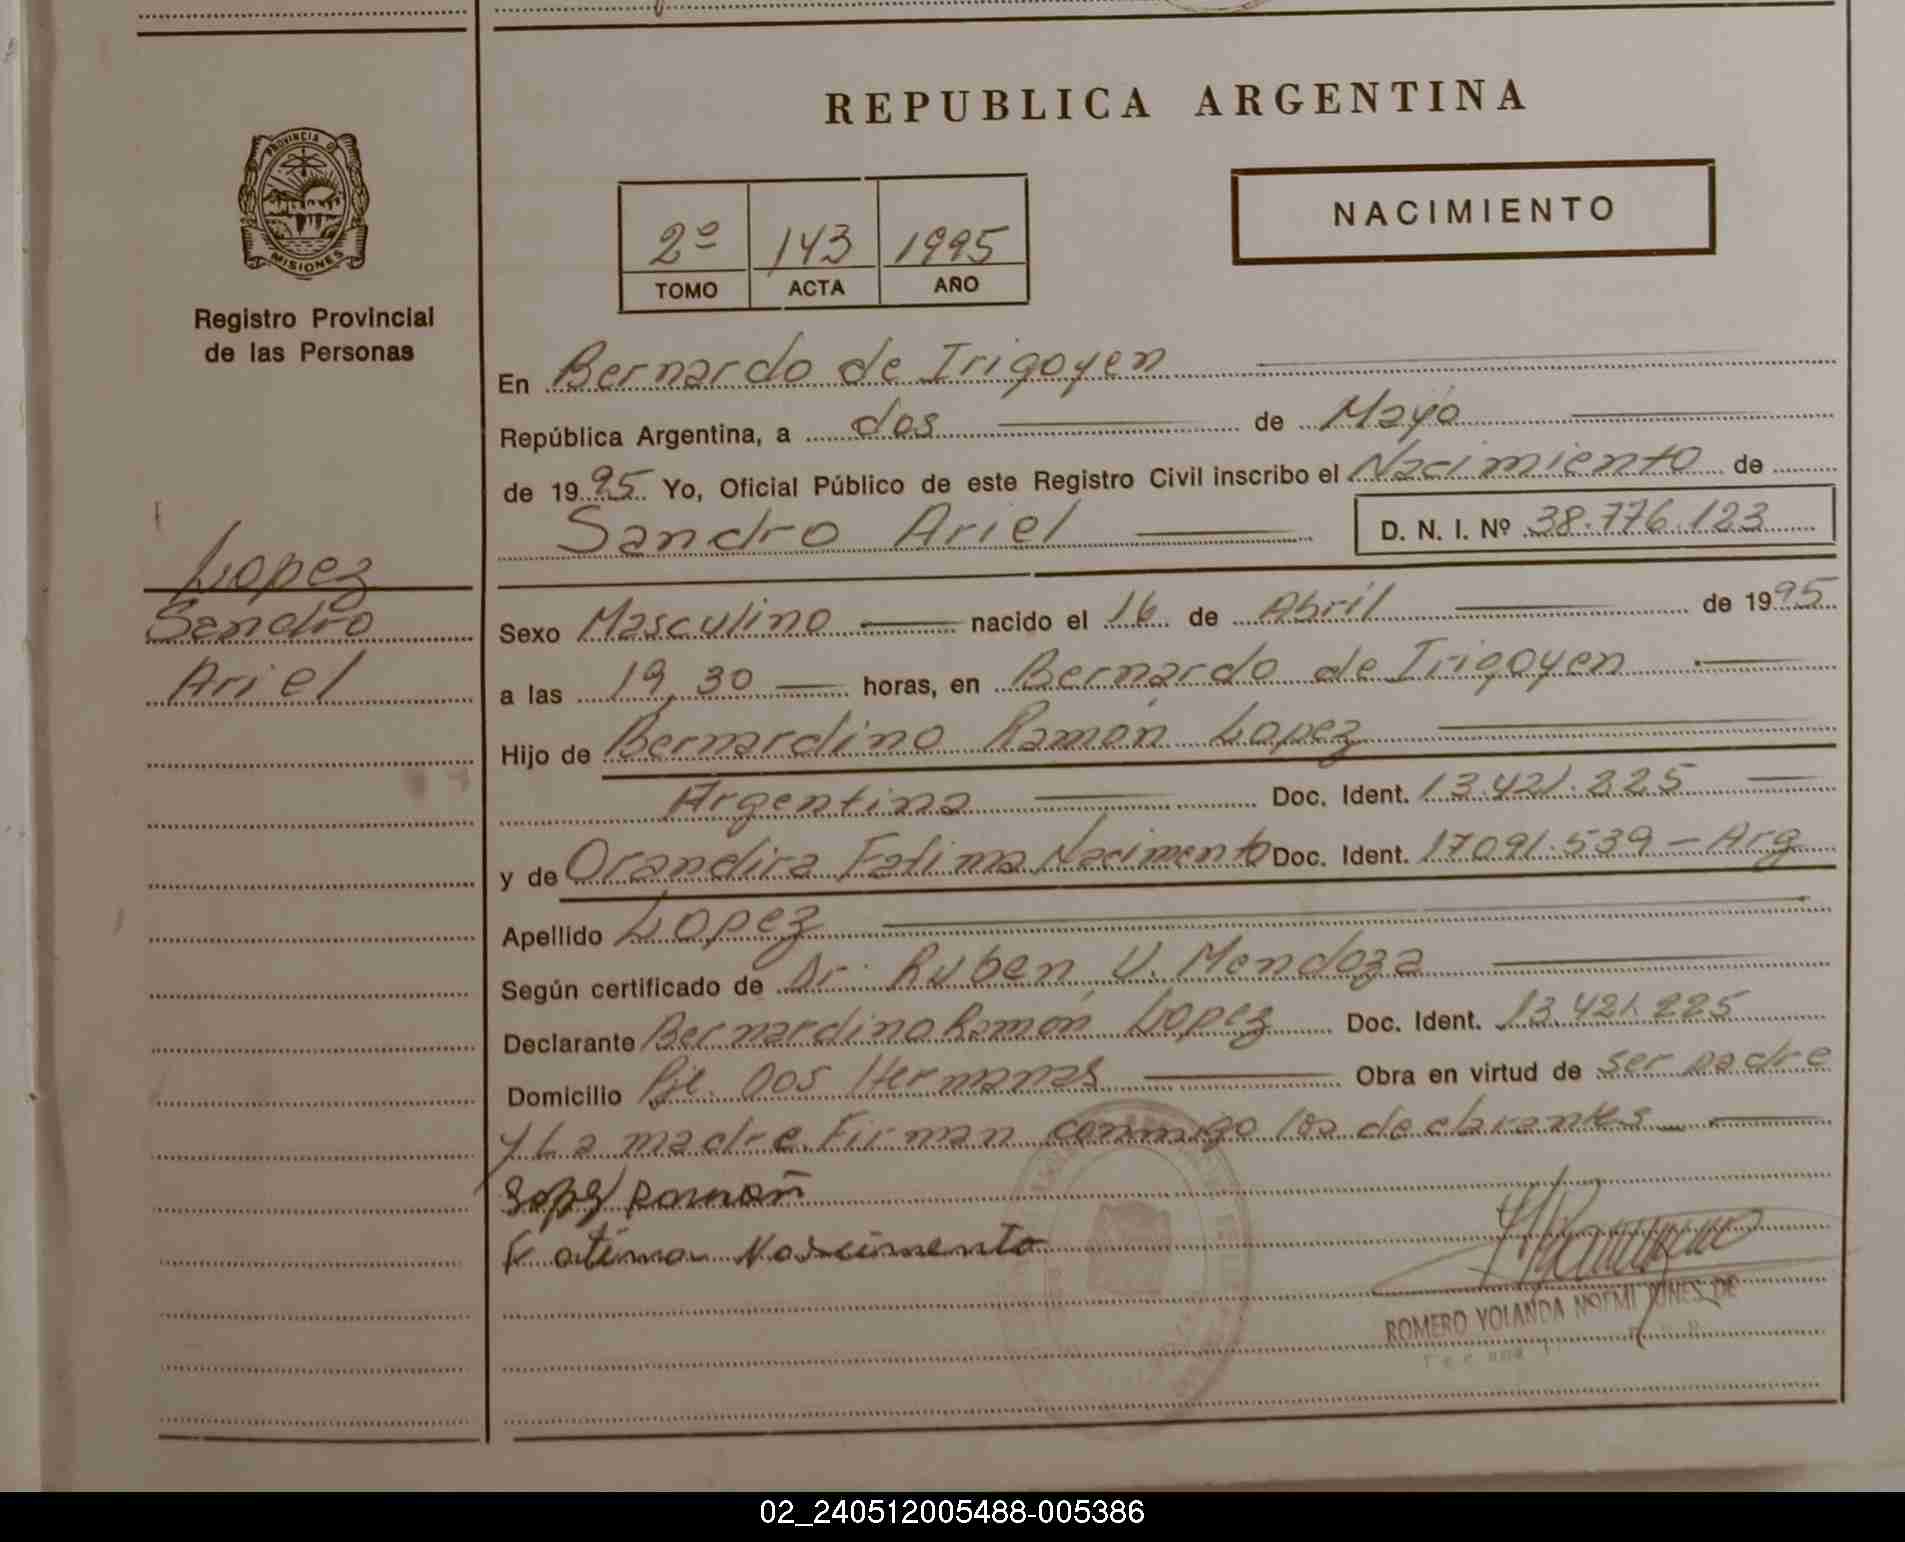 REPUBLICA ARGENTINA
PROVINCIA D
MISIONES
Registro Provincial
de las Personas
2º 143 1995
TOMO ACTA AÑO
NACIMIENTO
En Bernardo de Irigoyen
República Argentina, a dos de Mayo
de 1995 Yo, Oficial Público de este Registro Civil inscribo el Nacimiento de
Sandro Ariel D. N. I. Nº 38.776.123
Lopez
Sandro
Ariel
Sexo Masculino nacido el 16 de Abril de 1995
a las 19,30 horas, en Bernardo de Irigoyen
Hijo de Bernardino Ramón Lopez
Argentina Doc. Ident. 13.421.225
y de Orandira Fatima Nacimento Doc. Ident. 17091.539 - Arg
Apellido Lopez
Según certificado de Dr. Ruben U. Mendoza
Declarante Bernardino Ramón Lopez Doc. Ident. 13.421.225
Domicilio Pje. Dos Hermanas Obra en virtud de ser padre
y La madre. Firman conmigo los declarantes
Lopez Ramon
Fatima Nascimento
ROMERO YOLANDA NOEMI DE
02_240512005488-005386